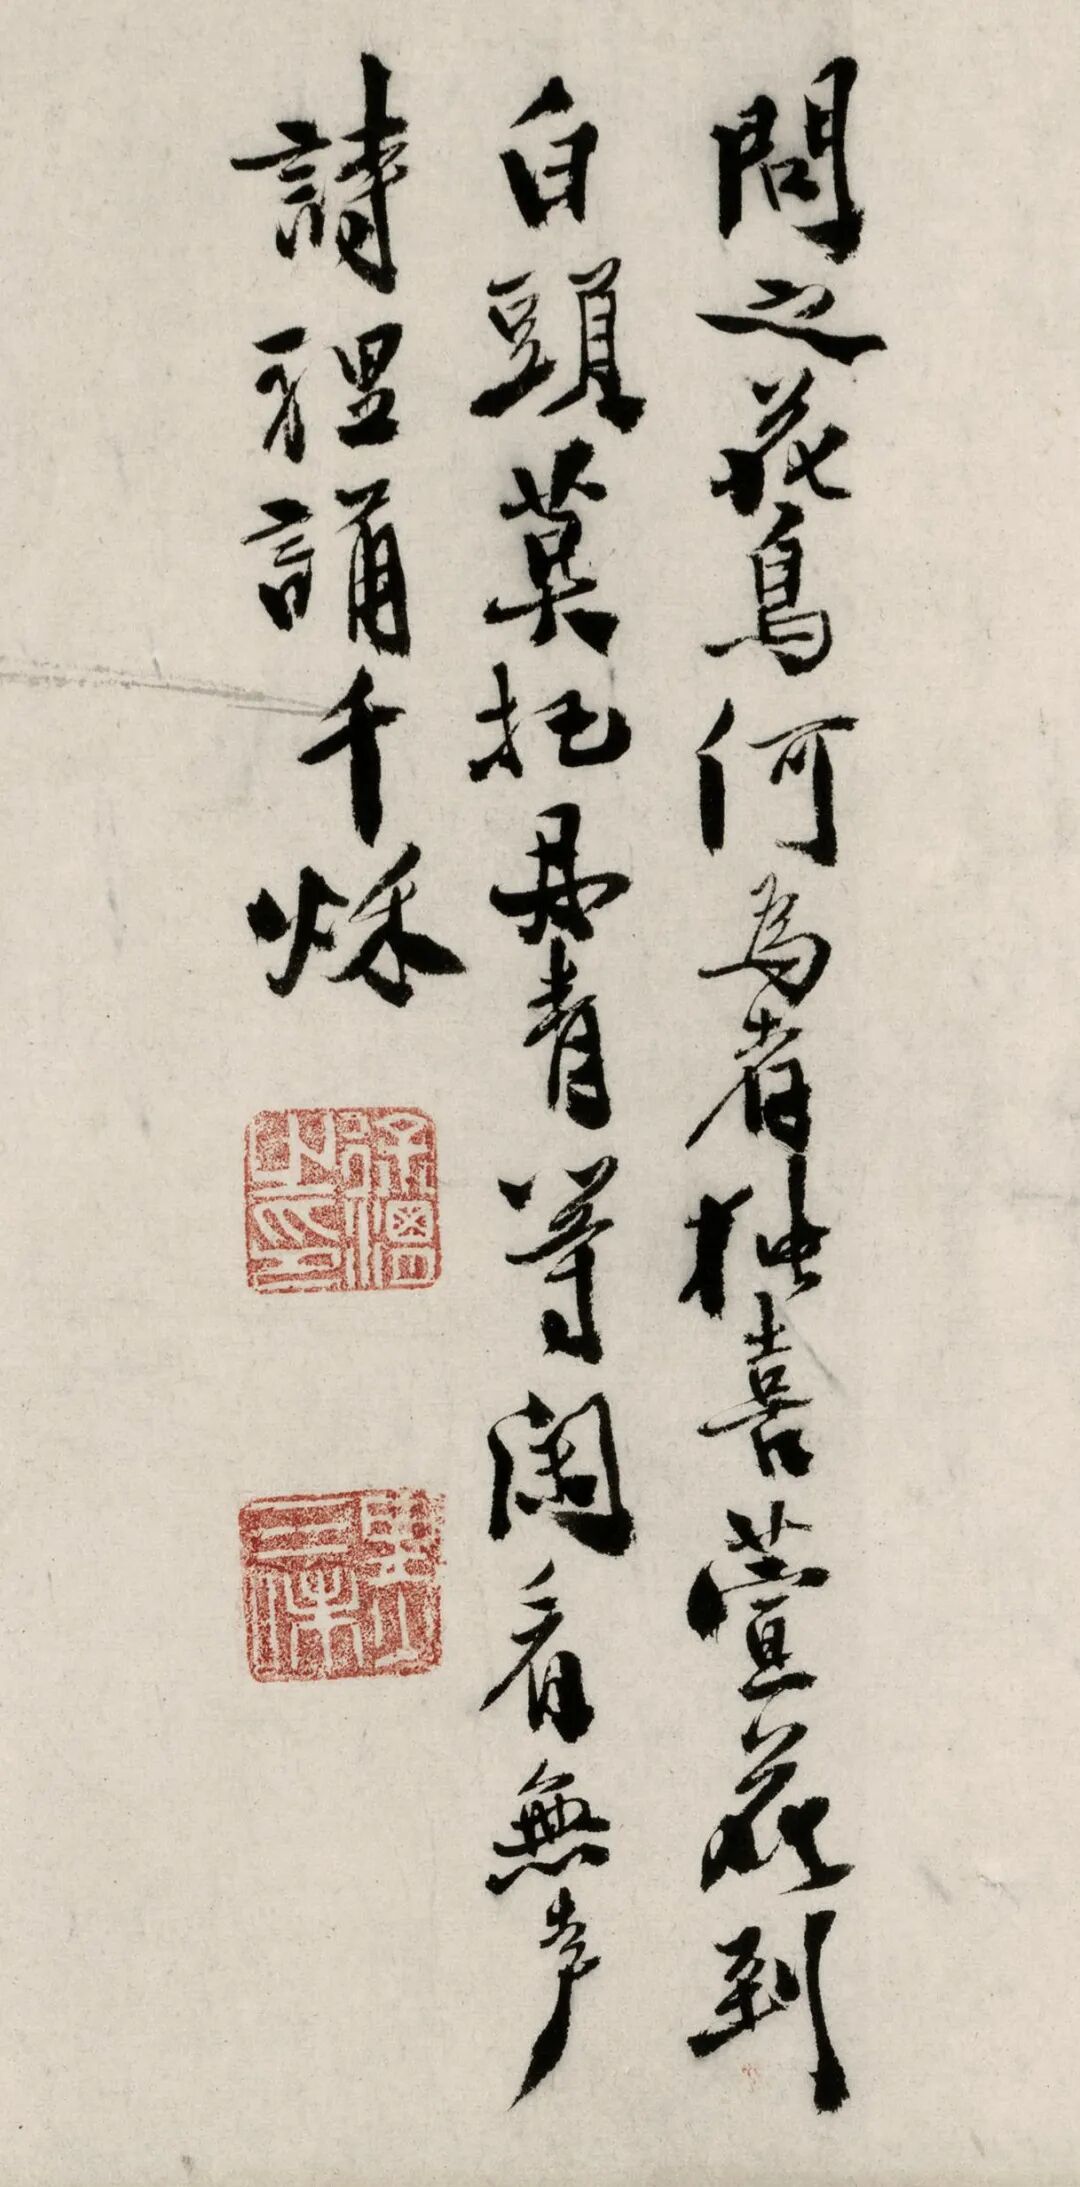 問之花鳥何為者独喜萱花到
白頭莫把丹青等閑看無声
詩裡誦千秌
徐渭之印